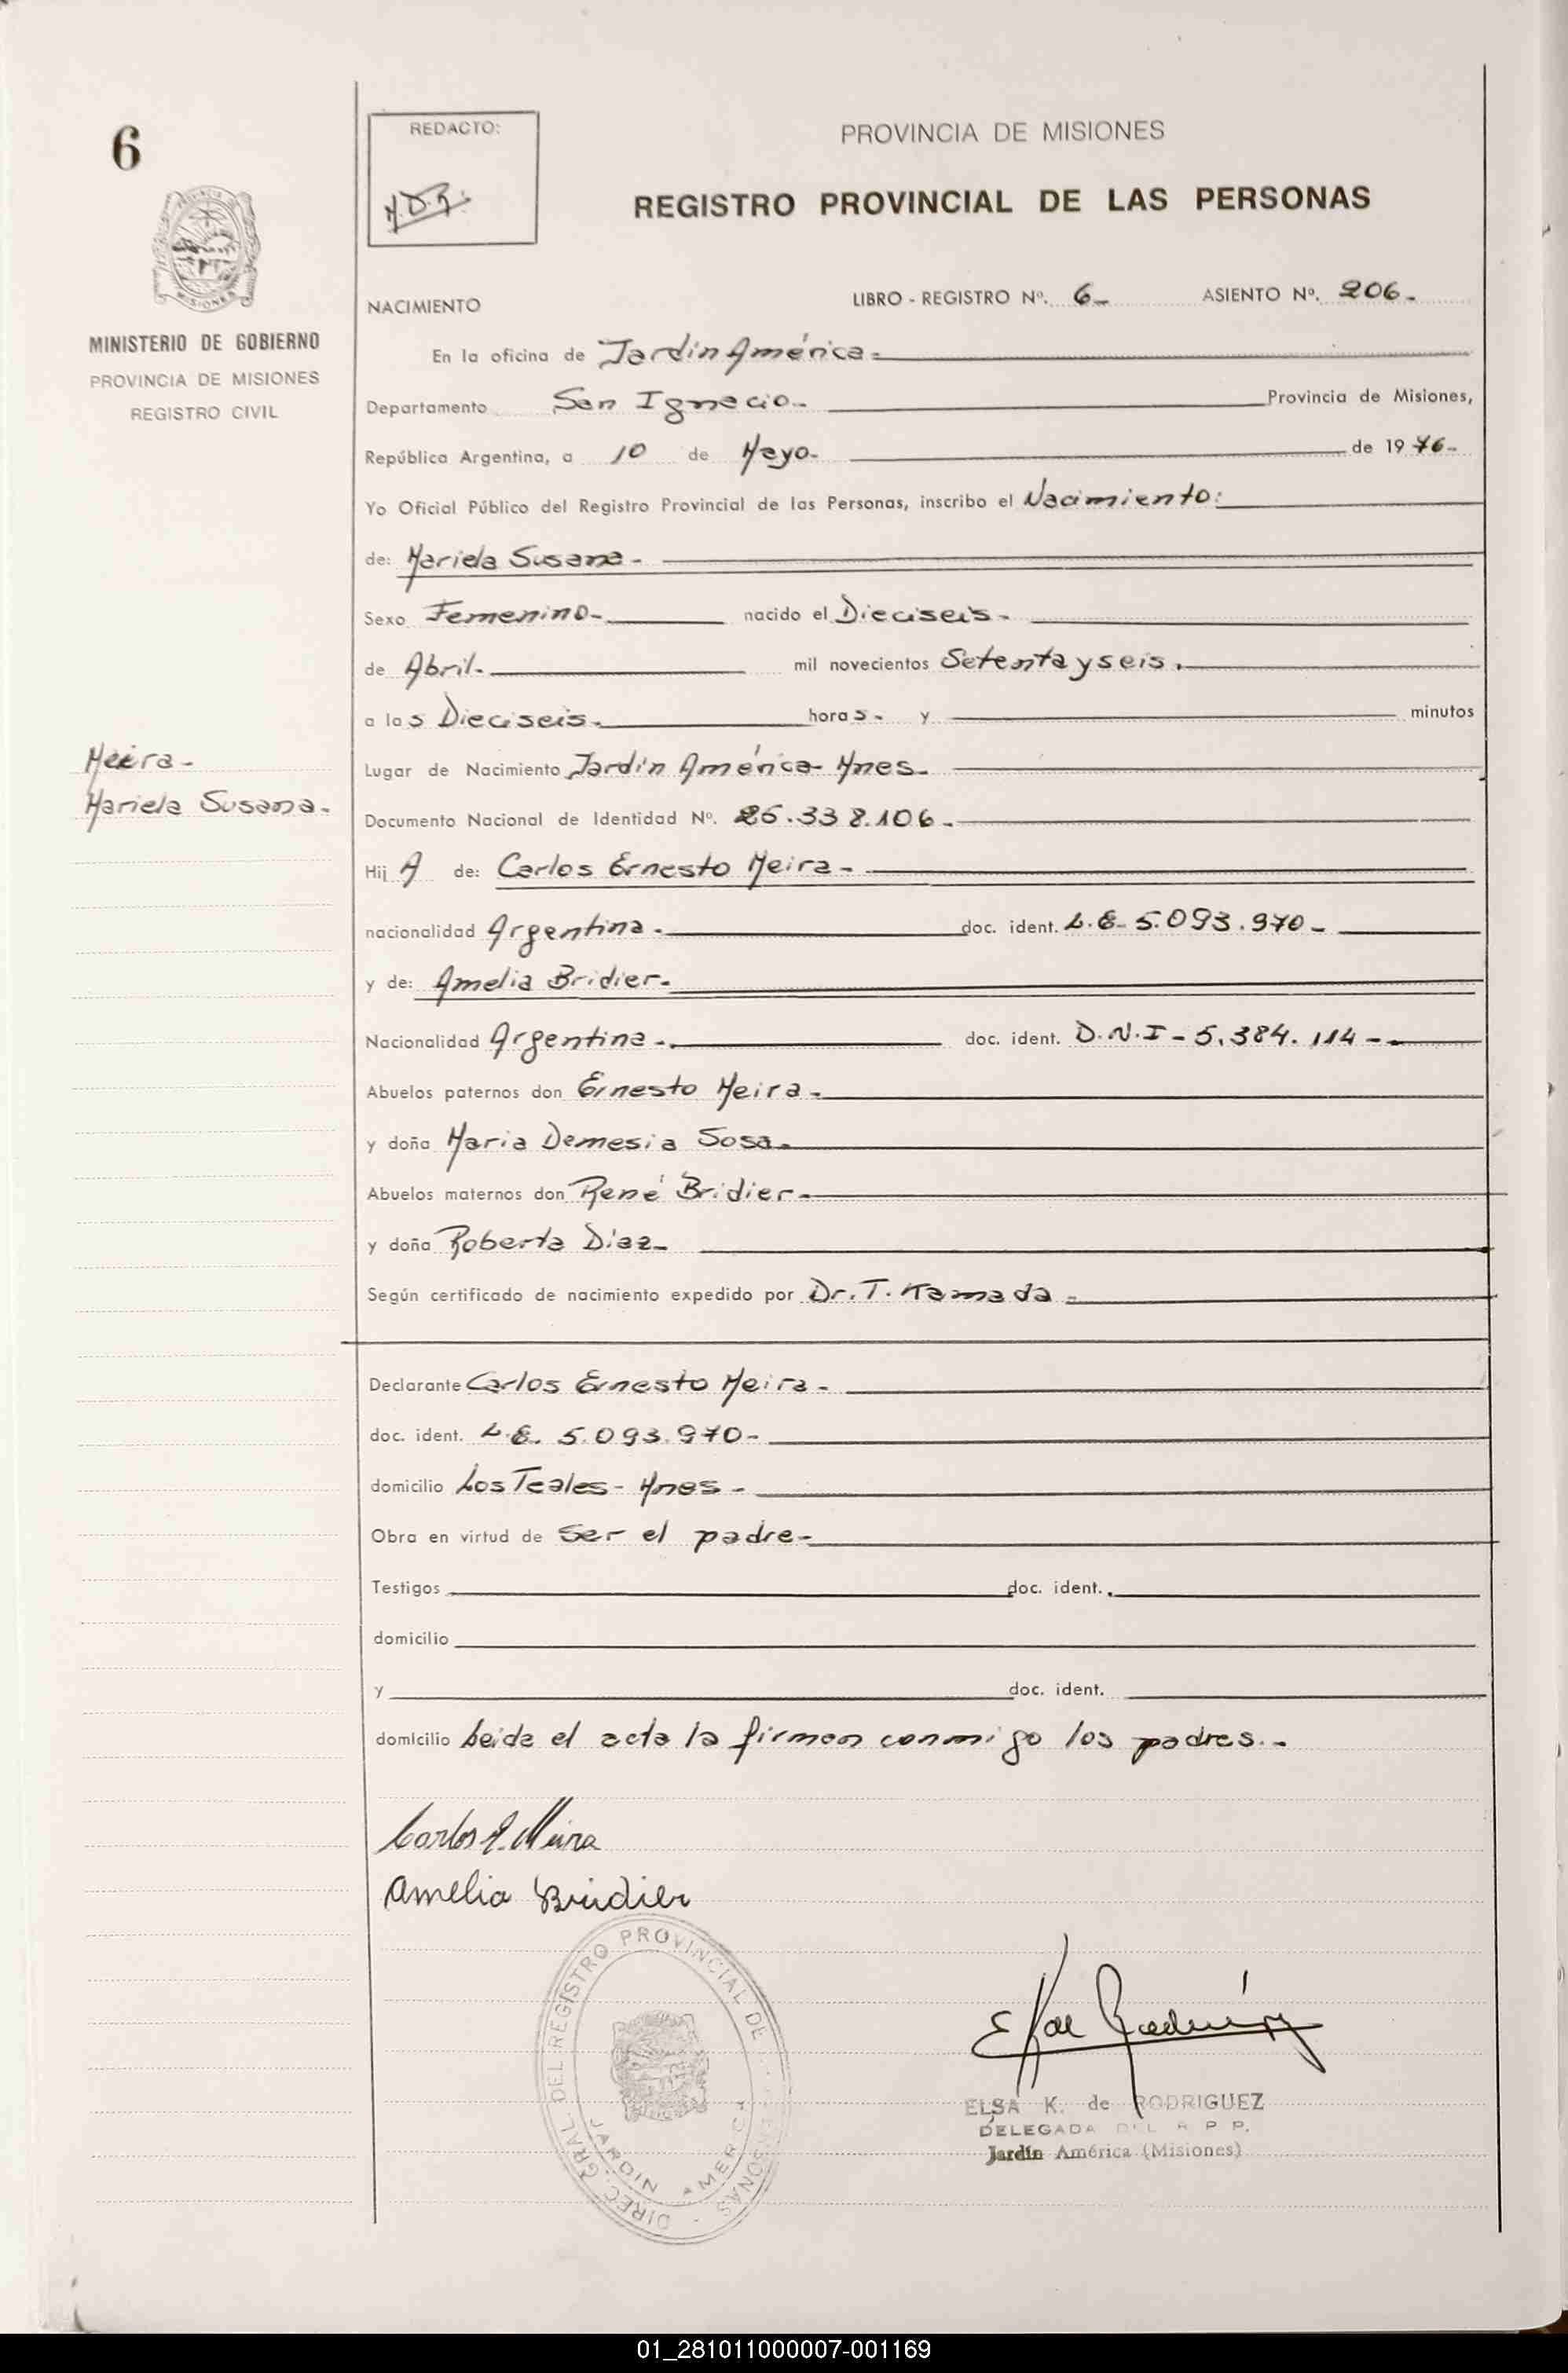 6
MINISTERIO DE GOBIERNO
PROVINCIA DE MISIONES
REGISTRO CIVIL
Meira-
Mariela Susana-
REDACTO:
PROVINCIA DE MISIONES
REGISTRO PROVINCIAL DE LAS PERSONAS
NACIMIENTO LIBRO - REGISTRO Nº. 6- ASIENTO Nº. 206-
En la oficina de Jardín América-
Departamento San Ignacio- Provincia de Misiones,
República Argentina, a 10 de Mayo- de 1976-
Yo Oficial Público del Registro Provincial de las Personas, inscribo el Nacimiento:
de: Mariela Susana-
Sexo Femenino- nacido el Dieciseis-
de Abril- mil novecientos Setenta y seis.
a las Dieciseis- horas- y minutos
Lugar de Nacimiento Jardín América- Mnes-
Documento Nacional de Identidad Nº. 25.338.106-
Hij A de: Carlos Ernesto Meira-
nacionalidad Argentina- doc. ident. L.E- 5.093.970-
y de: Amelia Bridier-
Nacionalidad Argentina-. doc. ident. D.N.I- 5.384.114--
Abuelos paternos don Ernesto Meira-
y doña Maria Demesia Sosa-
Abuelos maternos don René Bridier-
y doña Roberta Diaz-
Según certificado de nacimiento expedido por Dr. T. Kamada-
Declarante Carlos Ernesto Meira-
doc. ident. L.E. 5.093.970-
domicilio Los Teales- Mnes-
Obra en virtud de ser el padre-
Testigos doc. ident.
domicilio
y doc. ident.
domicilio Leida el acta la firman conmigo los padres.-
Carlos E. Meira
Amelia Bridier
DIREC. GRAL DEL REGISTRO PROVINCIAL DE PERSONAS
JARDIN AMERICA
ELSA K. de RODRIGUEZ
DELEGADA DEL R P P.
Jardín América (Misiones)
01_281011000007-001169